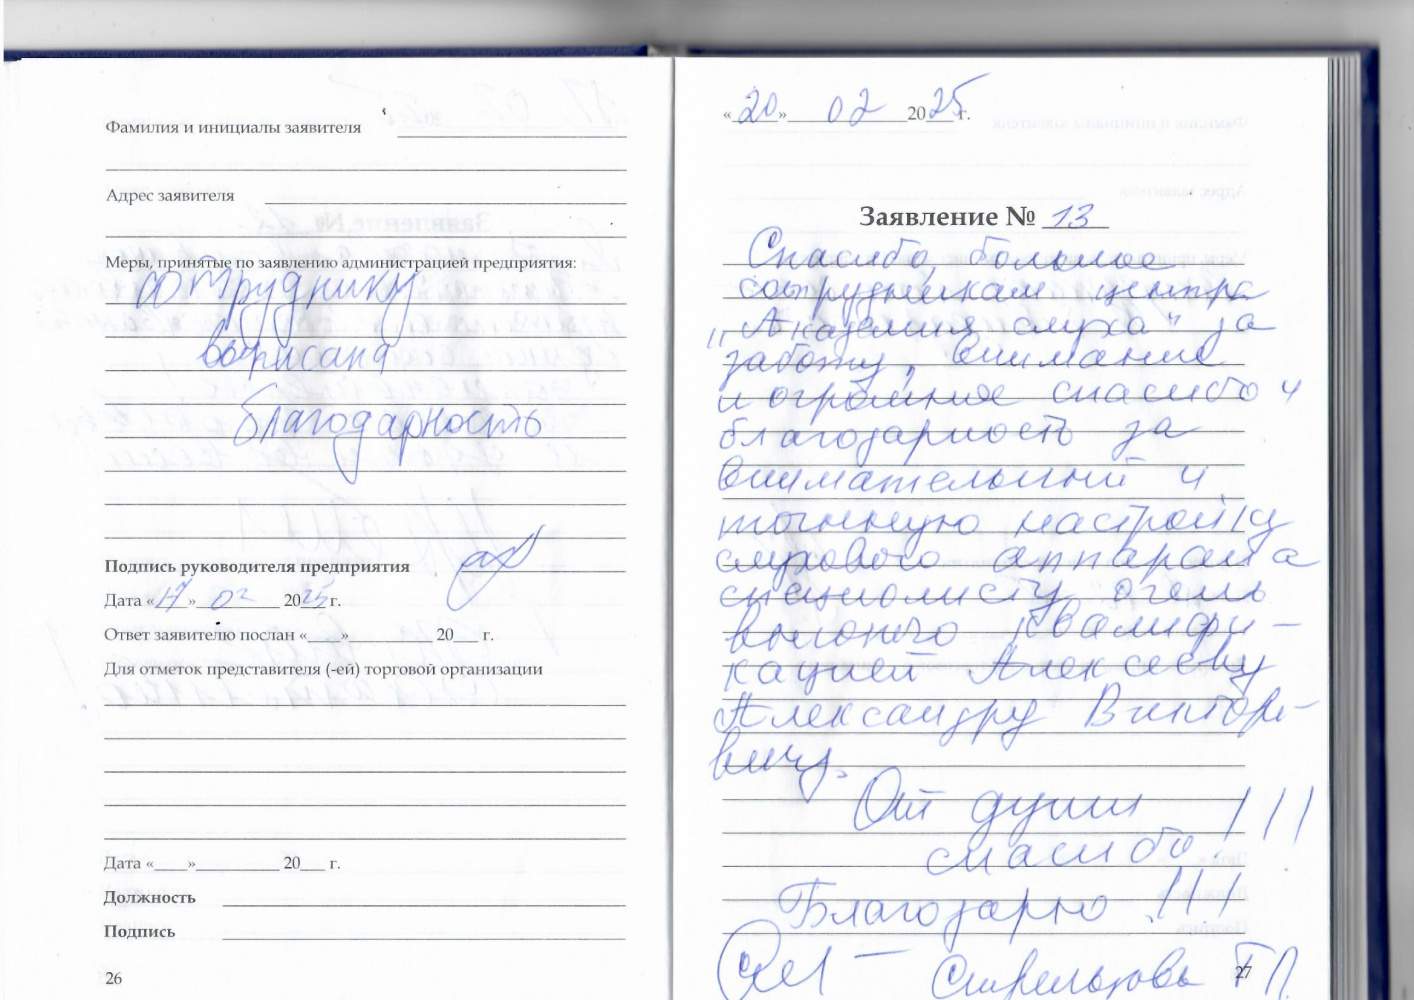 Фамилия и инициалы заявителя
Адрес заявителя
Меры, принятые по заявлению администрацией предприятия:
сотруднику
выписана
благодарность
Подпись руководителя предприятия
Дата «17» 02 2025 г.
Ответ заявителю послан «___» 20___ г.
Для отметок представителя (-ей) торговой организации
Дата «___» 20___ г.
Должность
Подпись
26
«20» 02 2025 г.
Заявление № 13
Спасибо, большое
сотрудникам центра
"Академия слуха" за
заботу, внимание
и огромное спасибо и
благодарность за
внимательный и
точнную настройку
слухового аппарата
специалисту очень
высокого квалифи-
кацией Алексееву
Александру Викторо-
вичу.
От души !!!
спасибо
Благодарю !!!
Стрельцова Г.П.
27